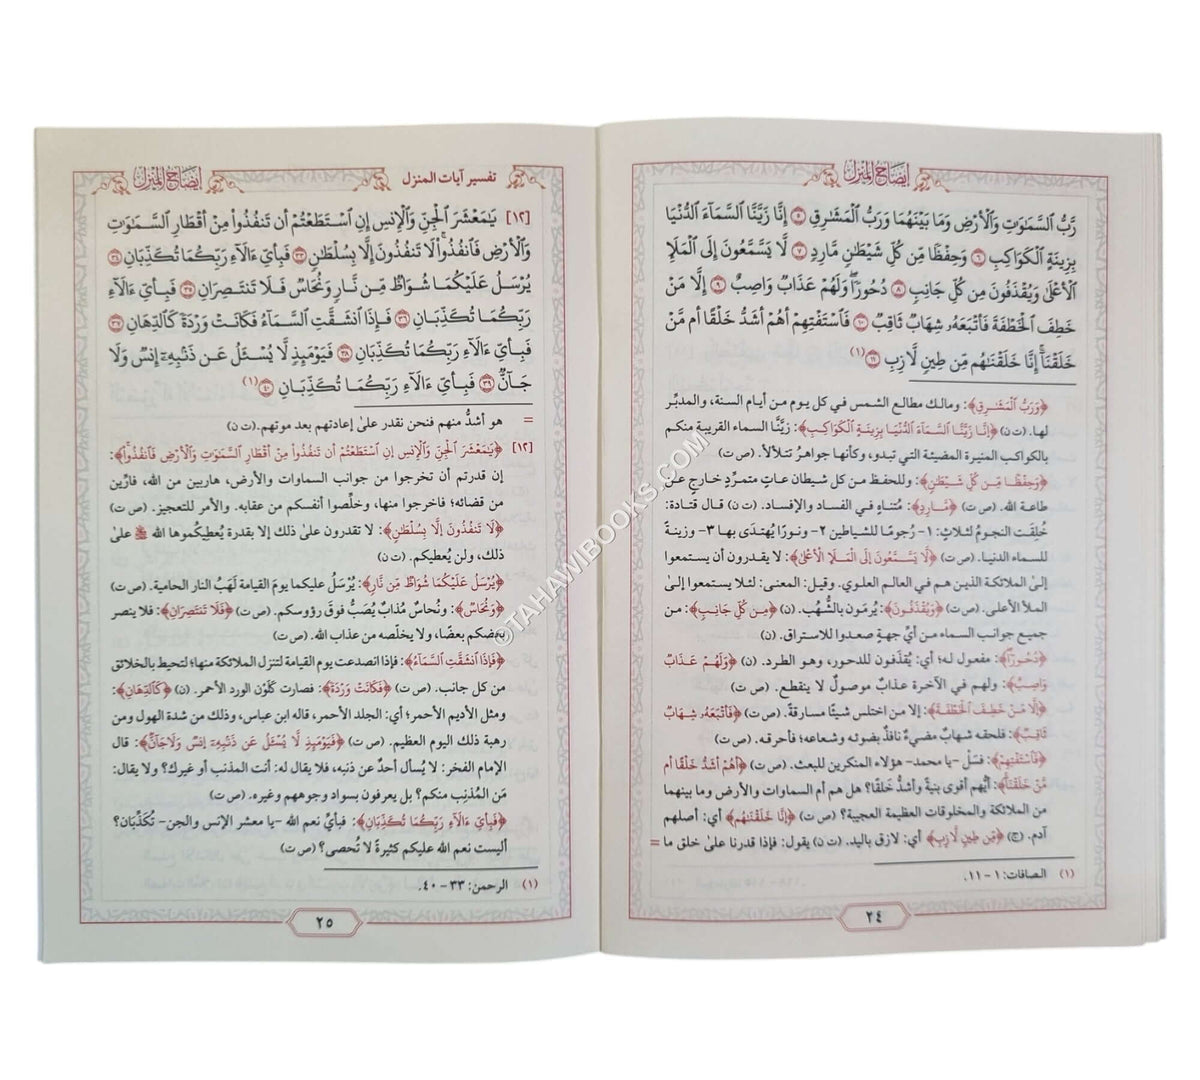 إيضاح المنزل
رَّبُّ السَّمَٰوَٰتِ وَالْأَرْضِ وَمَا بَيْنَهُمَا وَرَبُّ الْمَشَٰرِقِ ۝٥ إِنَّا زَيَّنَّا السَّمَآءَ الدُّنْيَا
بِزِينَةٍ الْكَوَاكِبِ ۝٦ وَحِفْظًا مِّن كُلِّ شَيْطَٰنٍ مَّارِدٍ ۝٧ لَّا يَسَّمَّعُونَ إِلَى الْمَلَإِ
الْأَعْلَىٰ وَيُقْذَفُونَ مِن كُلِّ جَانِبٍ ۝٨ دُحُورًا ۖ وَلَهُمْ عَذَابٌ وَاصِبٌ ۝٩ إِلَّا مَنْ
خَطِفَ الْخَطْفَةَ فَأَتْبَعَهُۥ شِهَابٌ ثَاقِبٌ ۝١٠ فَاسْتَفْتِهِمْ أَهُمْ أَشَدُّ خَلْقًا أَم مَّنْ
خَلَقْنَآ ۚ إِنَّا خَلَقْنَٰهُم مِّن طِينٍ لَّازِبٍ ۝١١ (١)
﴿وَرَبُّ الْمَشَٰرِقِ﴾: ومالك مطالع الشمس في كل يوم من أيام السنة، والمدبِّر
لها. (ت ن) ﴿إِنَّا زَيَّنَّا السَّمَآءَ الدُّنْيَا بِزِينَةٍ الْكَوَاكِبِ﴾: زيَّنَّا السماء القريبة منكم
بالكواكب المنيرة المضيئة التي تبدو، وكأنها جواهرُ تتلألأ. (ص ت)
﴿وَحِفْظًا مِّن كُلِّ شَيْطَٰنٍ﴾: وللحفظ من كل شيطان عاتٍ متمرِّدٍ خارجٍ على
طاعة الله. (ص ت) ﴿مَّارِدٍ﴾: مُتناهٍ في الفساد والإفساد. (ت ن) قال قتادة:
خُلِقَت النجومُ لثلاثٍ: ١- رجومًا للشياطين ٢- ونورًا يُهتدَى بها ٣- وزينةً
للسماء الدنيا. (ص ت) ﴿لَّا يَسَّمَّعُونَ إِلَى الْمَلَإِ الْأَعْلَىٰ﴾: لا يقدرون أن يستمعوا
إلى الملائكة الذين هم في العالم العلوي. وقيل: المعنى: لئلا يستمعوا إلى
الملأ الأعلى. (ص ت) ﴿وَيُقْذَفُونَ﴾: يُرمَون بالشُّهُب. (ن) ﴿مِن كُلِّ جَانِبٍ﴾: من
جميع جوانب السماء من أيِّ جهةٍ صعدوا للاستراق. (ن)
﴿دُحُورًا﴾: مفعول له؛ أي: يُقذَفون للدحور، وهو الطرد. (ن) ﴿وَلَهُمْ عَذَابٌ
وَاصِبٌ﴾: ولهم في الآخرة عذابٌ موصولٌ لا ينقطع. (ص ت)
﴿إِلَّا مَنْ خَطِفَ الْخَطْفَةَ﴾: إلا من اختلس شيئًا مسارقةً. (ص ت) ﴿فَأَتْبَعَهُۥ شِهَابٌ
ثَاقِبٌ﴾: فلحقه شهابٌ مضيءٌ نافذٌ بضوئه وشعاعه؛ فأحرقه. (ص ت)
﴿فَاسْتَفْتِهِمْ﴾: فسَلْ -يا محمد- هؤلاء المنكرين للبعث. (ص ت) ﴿أَهُمْ أَشَدُّ خَلْقًا أَم
مَّنْ خَلَقْنَآ﴾: أيُّهم أقوى بنيةً وأشدُّ خلقًا؟ هل هم أم السماوات والأرض وما بينهما
من الملائكة والمخلوقات العظيمة العجيبة؟ (ص ت) ﴿إِنَّا خَلَقْنَٰهُم﴾ أي: أصلهم
آدم. (ج) ﴿مِّن طِينٍ لَّازِبٍ﴾ أي: لازق باليد. (ت ن) يقول: فإذا قدرنا على خلق ما =
(١) الصافات: ١-١١.
٢٤
تفسير آيات المنزل
إيضاح المنزل
[١٢] يَٰمَعْشَرَ الْجِنِّ وَالْإِنسِ إِنِ اسْتَطَعْتُمْ أَن تَنفُذُوا۟ مِنْ أَقْطَارِ السَّمَٰوَٰتِ
وَالْأَرْضِ فَانفُذُوا۟ ۚ لَا تَنفُذُونَ إِلَّا بِسُلْطَٰنٍ ۝٣٣ فَبِأَيِّ ءَالَآءِ رَبِّكُمَا تُكَذِّبَانِ ۝٣٤
يُرْسَلُ عَلَيْكُمَا شُوَاظٌ مِّن نَّارٍ وَنُحَاسٌ فَلَا تَنتَصِرَانِ ۝٣٥ فَبِأَيِّ ءَالَآءِ
رَبِّكُمَا تُكَذِّبَانِ ۝٣٦ فَإِذَا انشَقَّتِ السَّمَآءُ فَكَانَتْ وَرْدَةً كَالدِّهَانِ ۝٣٧
فَبِأَيِّ ءَالَآءِ رَبِّكُمَا تُكَذِّبَانِ ۝٣٨ فَيَوْمَئِذٍ لَّا يُسْـَٔلُ عَن ذَنۢبِهِۦٓ إِنسٌ وَلَا
جَآنٌّ ۝٣٩ فَبِأَيِّ ءَالَآءِ رَبِّكُمَا تُكَذِّبَانِ ۝٤٠ (١)
= هو أشدُّ منهم فنحن نقدر على إعادتهم بعد موتهم. (ت ن)
[١٢] ﴿يَٰمَعْشَرَ الْجِنِّ وَالْإِنسِ إِنِ اسْتَطَعْتُمْ أَن تَنفُذُوا۟ مِنْ أَقْطَارِ السَّمَٰوَٰتِ وَالْأَرْضِ فَانفُذُوا۟﴾:
إن قدرتم أن تخرجوا من جوانب السماوات والأرض، هاربين من الله، فارِّين
من قضائه؛ فاخرجوا منها، وخلِّصوا أنفسكم من عقابه. والأمر للتعجيز. (ص ت)
﴿لَا تَنفُذُونَ إِلَّا بِسُلْطَٰنٍ﴾: لا تقدرون على ذلك إلا بقدرة يُعطِيكُموها الله ﷻ على
ذلك، ولن يُعطيكم. (ت ن)
﴿يُرْسَلُ عَلَيْكُمَا شُوَاظٌ مِّن نَّارٍ﴾: يُرْسَلُ عليكما يومَ القيامة لَهَبُ النار الحامية. (ص ت)
﴿وَنُحَاسٌ﴾: ونُحاسٌ مُذابٌ يُصَبُّ فوقَ رؤوسكم. (ص ت) ﴿فَلَا تَنتَصِرَانِ﴾: فلا ينصر
بعضكم بعضًا، ولا يخلِّصه من عذاب الله. (ص ت)
﴿فَإِذَا انشَقَّتِ السَّمَآءُ﴾: فإذا انصدعت يوم القيامة لتنزل الملائكة منها؛ لتحيط بالخلائق
من كل جانب. (ص ت) ﴿فَكَانَتْ وَرْدَةً﴾: فصارت كلَوْن الورد الأحمر. (ن) ﴿كَالدِّهَانِ﴾:
ومثل الأديم الأحمر؛ أي: الجلد الأحمر، قاله ابن عباس، وذلك من شدة الهول ومن
رهبة ذلك اليوم العظيم. (ص ت) ﴿فَيَوْمَئِذٍ لَّا يُسْـَٔلُ عَن ذَنۢبِهِۦٓ إِنسٌ وَلَا جَآنٌّ﴾: قال
الإمام الفخر: لا يُسأل أحدٌ عن ذنبه، فلا يقال له: أنت المذنب أو غيرك؟ ولا يقال:
مَن المُذنِب منكم؟ بل يعرفون بسواد وجوههم وغيره. (ص ت)
﴿فَبِأَيِّ ءَالَآءِ رَبِّكُمَا تُكَذِّبَانِ﴾: فبأيِّ نعم الله -يا معشر الإنس والجن- تُكَذِّبَان؟
أليست نعم الله عليكم كثيرةً لا تُحصى؟ (ص ت)
(١) الرحمن: ٣٣-٤٠.
٢٥
©TAHAWIBOOKS.COM